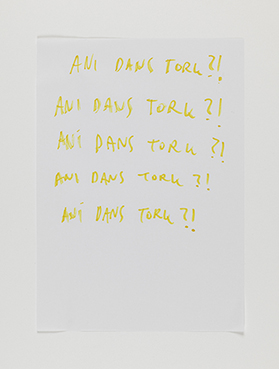 ANI DANS TORK?!
ANI DANS TORK?!
ANI DANS TORK?!
ANI DANS TORK?!
ANI DANS TORK?!